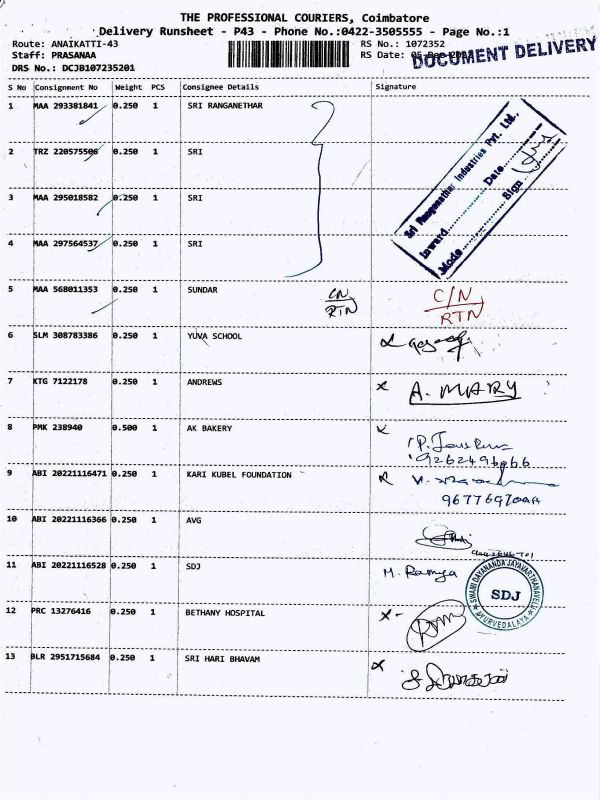 THE PROFESSIONAL COURIERS, Coimbatore
Delivery Runsheet - P43 - Phone No.:0422-3505555 - Page No.:1
Route: ANAIKATTI-43
Staff: PRASANAA
DRS No.: DCJB107235201
RS No.: 1072352
RS Date: 05
DOCUMENT DELIVERY
S No Consignment No Weight PCS Consignee Details Signature
1 MAA 293381841 0.250 1 SRI RANGANETHAR
2 TRZ 220575506 0.250 1 SRI
3 MAA 295018582 0.250 1 SRI
4 MAA 297564537 0.250 1 SRI
Sri Ranganathar Industries Pvt. Ltd.,
Inward Date
Mode Sign
5 MAA 568011353 0.250 1 SUNDAR CN RTN C/N RTN
6 SLM 308783386 0.250 1 YUVA SCHOOL
7 KTG 7122178 0.250 1 ANDREWS A. MARY
8 PMK 238940 0.500 1 AK BAKERY
9 ABI 20221116471 0.250 1 KARI KUBEL FOUNDATION
10 ABI 20221116366 0.250 1 AVG
11 ABI 20221116528 0.250 1 SDJ M. Ramya
SWAMI DAYANANDA JAYAVARTHANAVELU AYURVEDALAYA
SDJ
12 PRC 13276416 0.250 1 BETHANY HOSPITAL
13 BLR 2951715684 0.250 1 SRI HARI BHAVAM